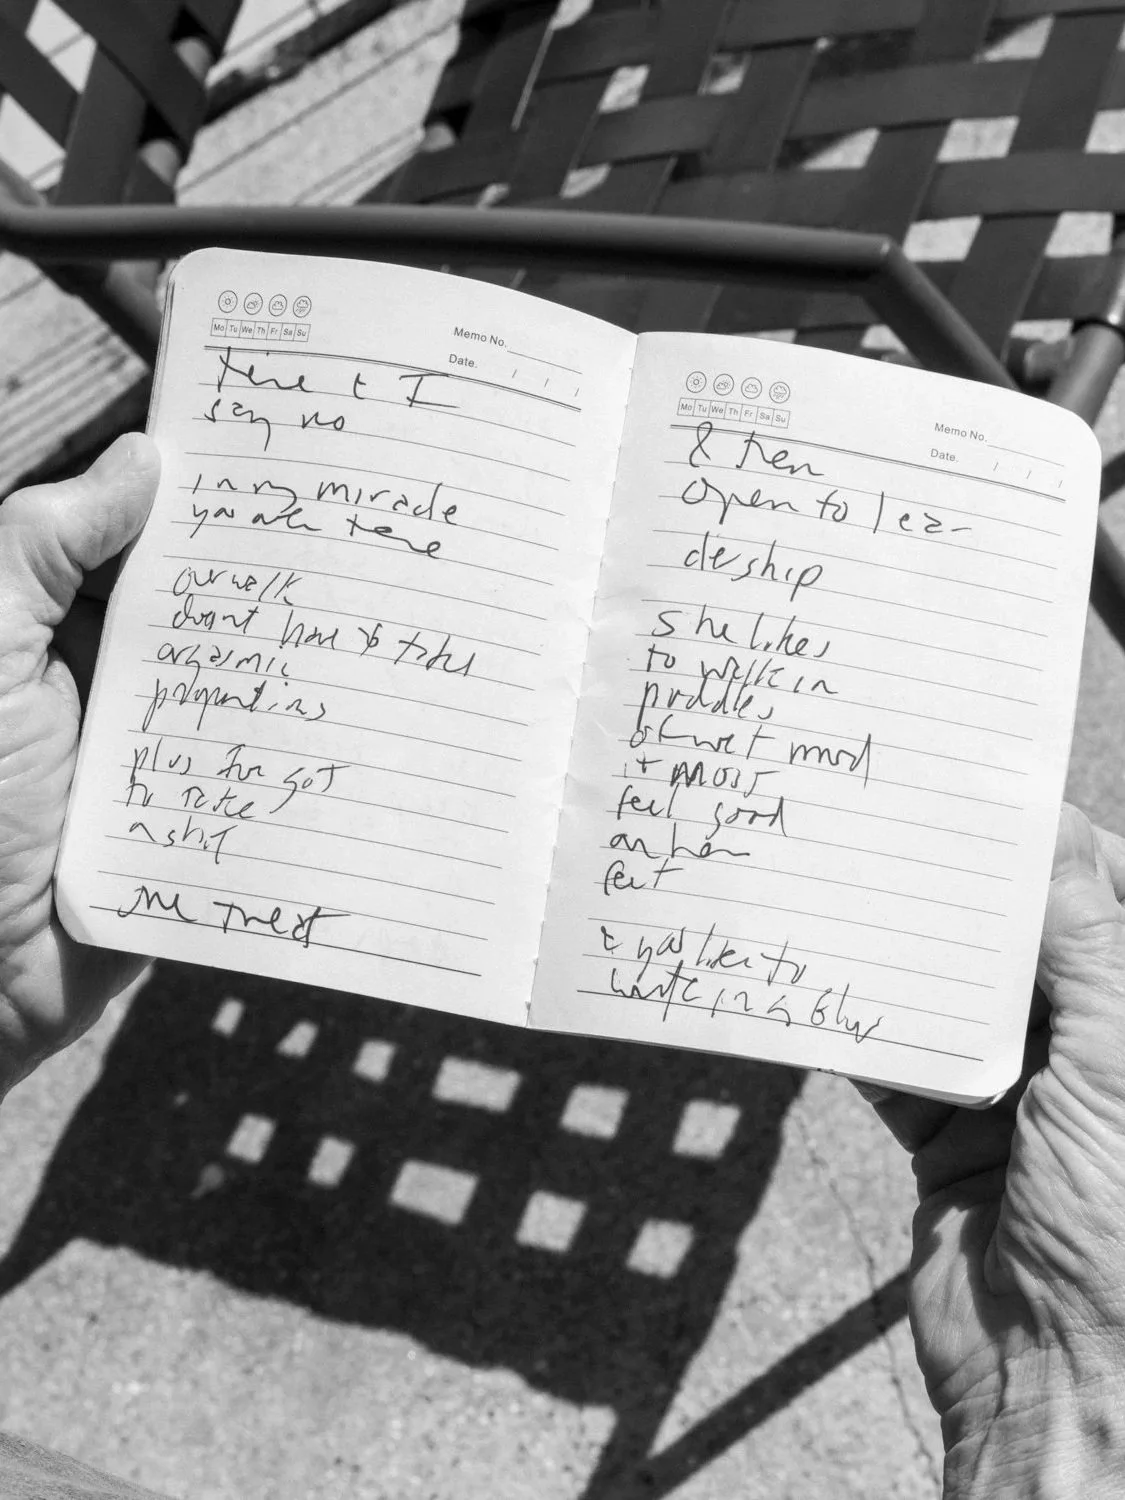 Mo Tu We Th Fr Sa Su
Memo No.
Date. / / /
time & I
say no
in my miracle
you are there
our walk
doesnt have to take
orgasmic
proportions
plus I forgot
to take
a shit
the treat
Mo Tu We Th Fr Sa Su
Memo No.
Date. / / /
& then
open to lea-
dership
she likes
to walk in
puddles
of wet mud
it must
feel good
on her
feet
& you like to
write in a blur